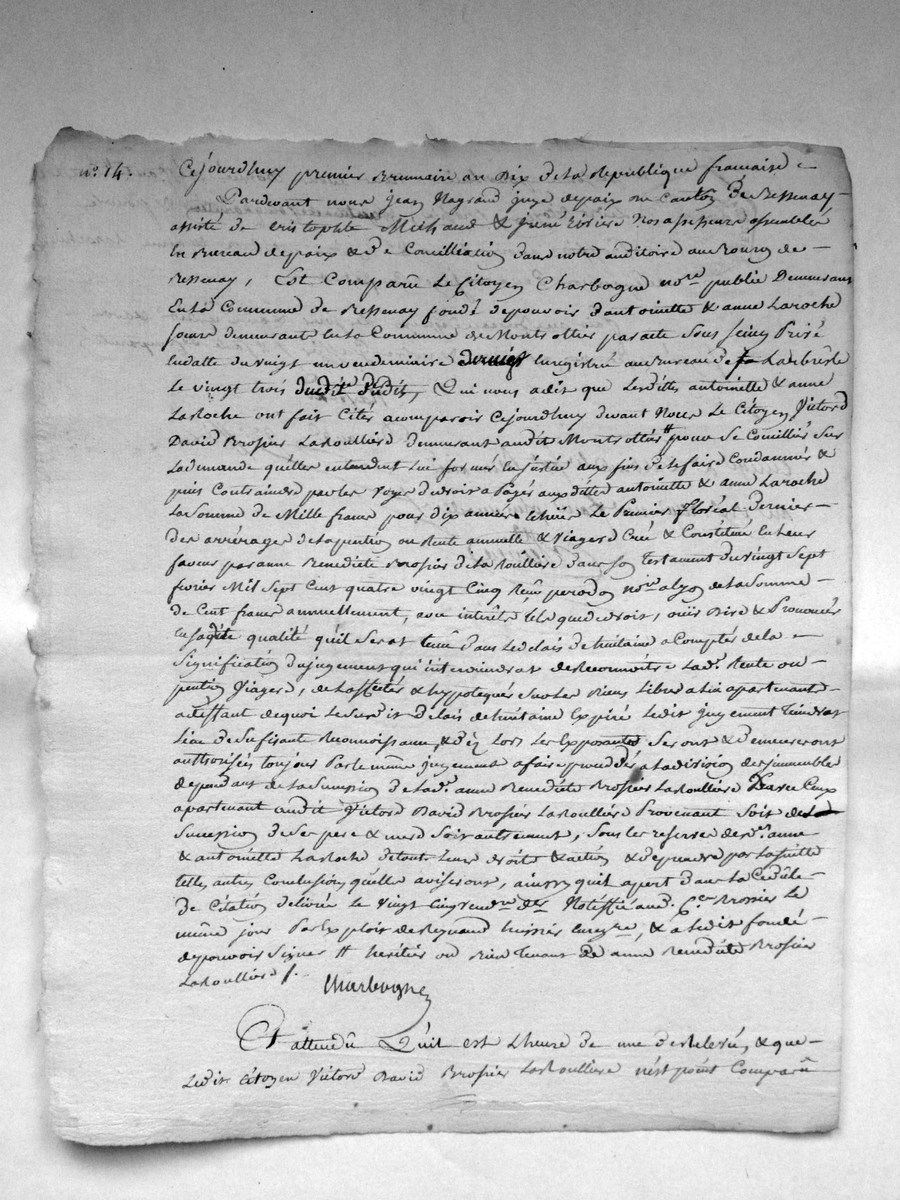 n.º 14. Cejourdhuy premier Brumaire an Dix de la Republique francaise
Pardevant nous jean Magrand juge de paix du Canton de Bessenay
assisté de Cristophle Michaud & jean Riviere nos assesseurs assemblés
En Bureau de paix & de Conciliation dans notre auditoire au Bourg de
Bessenay, Est Comparu Le Citoyen Charbogne nore public Demeurant
En la Commune de Bessenay fondé de pouvoir d'antoinette & anne Laroche
soeurs demeurant En la Commune de Montrottier par acte Sous Seing Privé
En datte du vingt un vendemiaire dernier Enregistré au Bureau de Larbresle
Le vingt trois dudit, Qui nous a dit que Lesdittes antoinette & anne
Laroche ont fait Citer a comparoir Cejourdhuy devant Nous Le Citoyen Victord
David Brosier Laroulliere demeurant audit Montrottier # pour Se Concilier Sur
La demande qu'elles entendent Lui former En justice aux fins de Le faire Condamner &
puis Contraindre par les voyes de droit a Payer auxdittes antoinette & anne Laroche
La Somme de Mille francs pour dix années échües Le Premier floréal Dernier
des arrérages de la pention ou Rente annuelle & viagere Créé & Constitüé En Leur
faveur par anne Benedicte Brosier de la Roulliere dans son testament du vingt Sept
fevrier Mil Sept Cent quatre vingt Cinq Reçu nore de la Somme
de Cent francs annuellement, avec intérêts tels que de droit, oüir Dire & Prononcer
En sadite qualité qu'il Serat tenu dans Le delais de huitaine a Compter de la
Signification du jugement qui interviendrat de Reconnoitre Lade Rente ou
pention viagere, de L'affecter & hypotequer Sur les Biens Libres a Lui apartenant
a deffaut de quoi Le Susdit delais de huitaine Expiré Ledit jugement tiendrat
Lieu de Sufisant Reconnoissance, & dès Lors Les Exposantes Seront & demeureront
authorisées toujours Par le même jugement a faire proceder a La division des jmmeubles
dependant de La Succession de Lade anne Benedicte Brosier Laroulliere D'avec Ceux
apartenant audit Victord David Brosier Laroulliere Provenant Soit de la
Succession de Ses pere & mere Soit autrement, Sous les reserves desdes anne
& antoinette Laroche de tout Leurs droits & action & de prendre par La Suitte
telles autres Conclusions qu'elles aviseront, ainsy qu'il apert dans La Cedule
de Citation delivrée Le vingt Cinq vendre der Notiffié aud. C.en Brosier Le
même jour Par Exploit de Reynaud huissier Enregre, & a Ledit fondé
de pouvoir Signer # heritier ou Bien Tenant de anne Benedicte Brosier
Laroulliere /.
Charbogne
Et attendu Qu'il est L'heure de une de relevée, & que
Ledit Citoyen Victord David Brosier Laroulliere n'est point Comparû